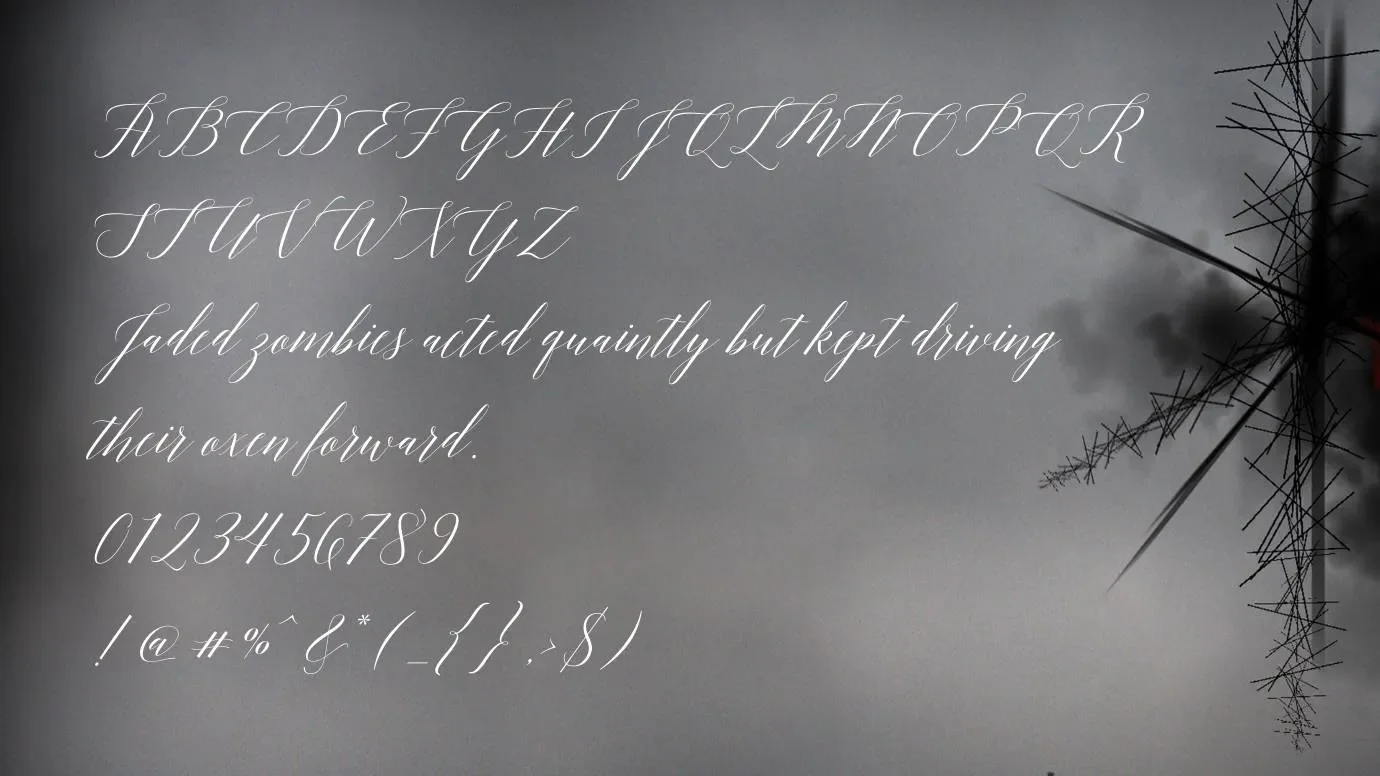 ABCDEFGHIJQLMNOPQR
STUVWXYZ
Jaded zombies acted quaintly but kept driving
their oxen forward.
0123456789
!@#%^&*(_{},>$)